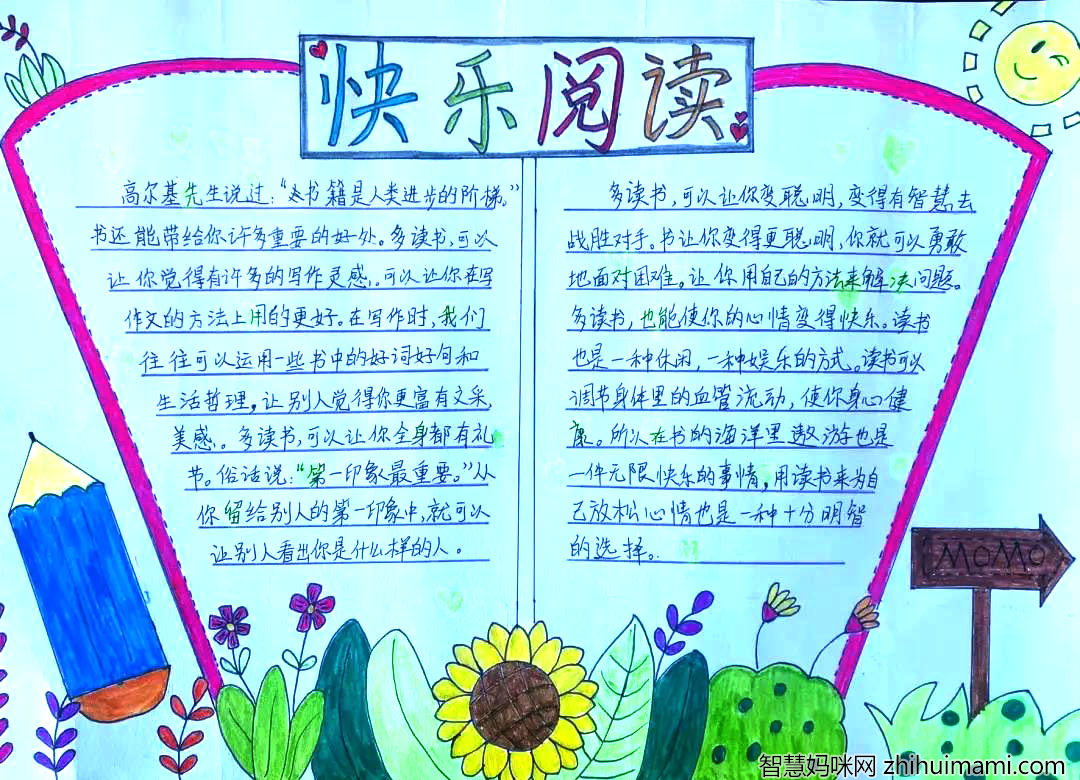 快乐阅读
高尔基先生说过：“书籍是人类进步的阶梯。”
书还能带给你许多重要的好处。多读书，可以
让你觉得有许多的写作灵感。可以让你在写
作文的方法上用的更好。在写作时，我们
往往可以运用一些书中的好词好句和
生活哲理，让别人觉得你更富有文采，
美感。多读书，可以让你全身都有礼
节。俗话说：“第一印象最重要。”从
你留给别人的第一印象中，就可以
让别人看出你是什么样的人。
多读书，可以让你变聪明，变得有智慧去
战胜对手。书让你变得更聪明，你就可以勇敢
地面对困难。让你用自己的方法来解决问题。
多读书，也能使你的心情变得快乐。读书
也是一种休闲，一种娱乐的方式。读书可以
调节身体里的血管流动，使你身心健
康。所以在书的海洋里遨游也是
一件无限快乐的事情，用读书来为自
己放松心情也是一种十分明智
的选择。
MOMO
智慧妈咪网 zhihuimami.com